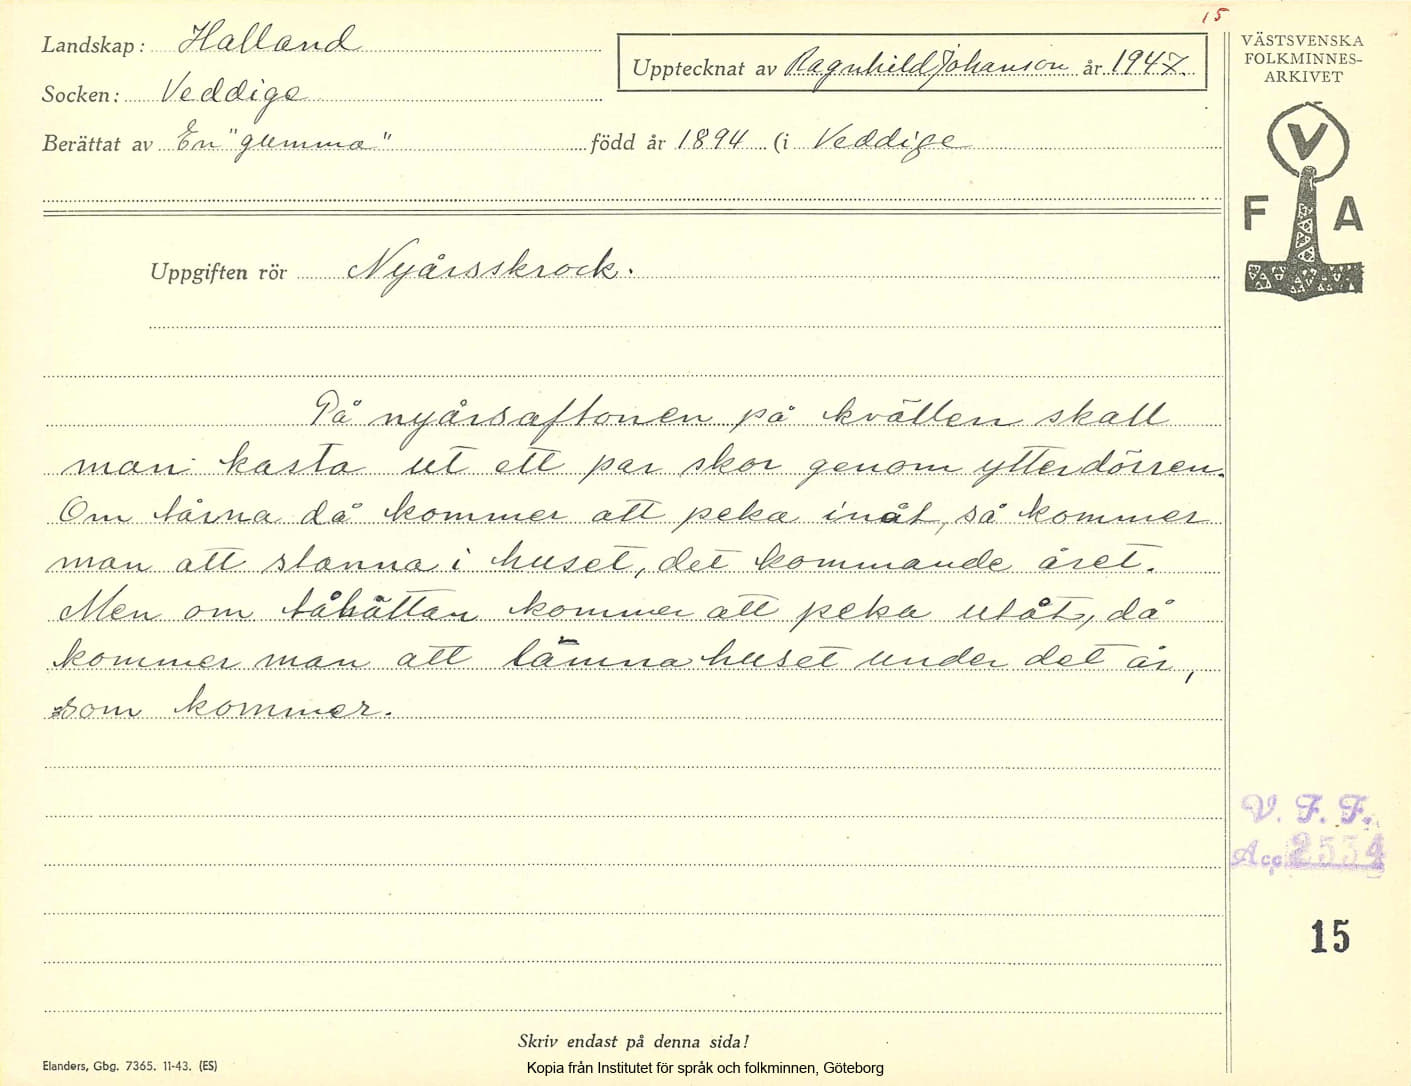 15
Landskap: Halland
Upptecknat av Ragnhild Johanson år 1947.
VÄSTSVENSKA
FOLKMINNES-
ARKIVET
Socken: Veddige
Berättat av En "gumma" född år 1894 (i Veddige
V
F A
Uppgiften rör Nyårsskrock.
På nyårsaftonen på kvällen skall
man kasta ut ett par skor genom ytterdörren.
Om tårna då kommer att peka inåt, så kommer
man att stanna i huset, det kommande året.
Men om tåhättan kommer att peka utåt, då
kommer man att lämna huset under det år,
som kommer.
V. F. F.
Acc 2554
15
Skriv endast på denna sida!
Elanders, Gbg. 7365. 11-43. (ES)
Kopia från Institutet för språk och folkminnen, Göteborg